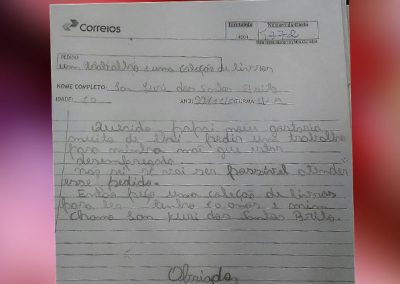 Correios
Número da Carta
1272
PEDIDO:
um trabalho e uma coleção de livros
NOME COMPLETO: Ian Yuri dos Santos Brito
IDADE: 10
Querido papai noel gostaria
muito de lhe pedir um trabalho
para minha mãe que está
desempregada.
não sei se vai ser possível atender
esse pedido.
Então peço uma coleção de livros
para ler. tenho 10 anos e
chamo Ian Yuri dos Santos Brito.
Obrigado